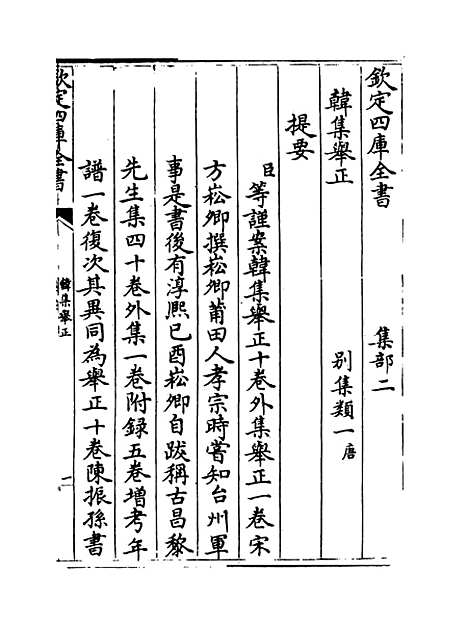 欽定四庫全書　集部二
韓集舉正　別集類一唐
提要
臣等謹案韓集舉正十卷外集舉正一卷宋
方崧卿撰崧卿莆田人孝宗時嘗知台州軍
事是書後有淳熙己酉崧卿自跋稱古昌黎
先生集四十卷外集一卷附録五卷增考年
譜一卷復次其異同為舉正十卷陳振孫書
欽定四庫全書
韓集舉正
一